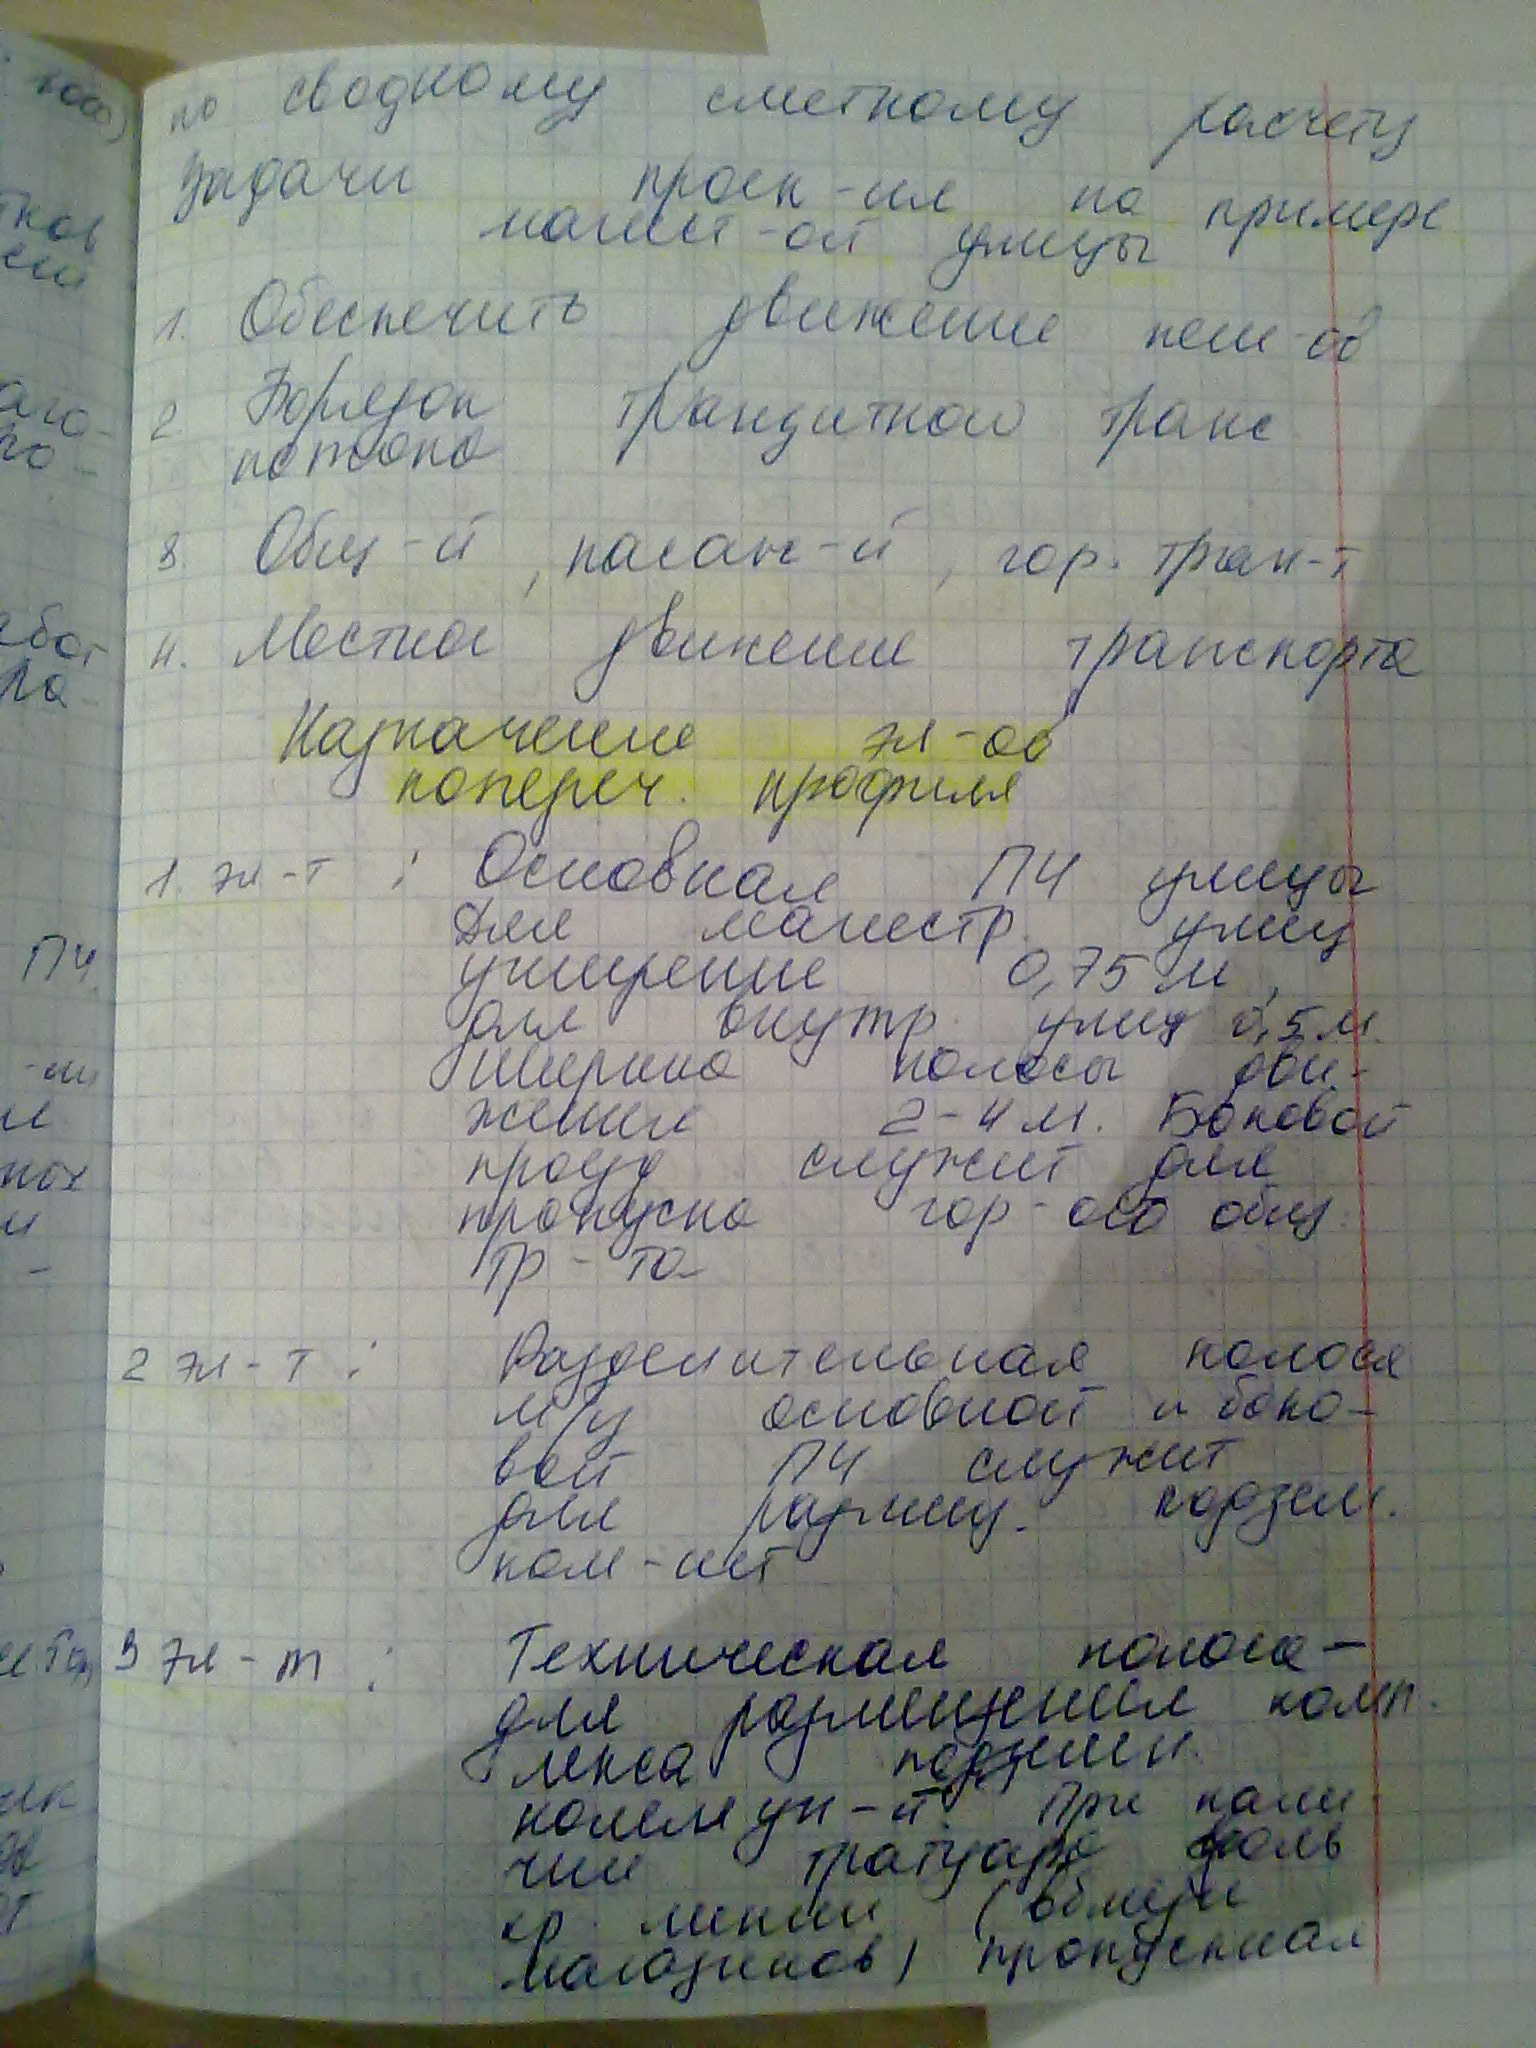 по сводному сметному расчету
Задачи проек-ия на примере
магист-ой улицы
1. Обеспечить движение пеш-ов
2 транзитного транс
потока
3. Общ-й, пасаж-й, гор. тран-т
4. Местное движение транспорта
Назначение эл-ов
попереч. профиля
1. эл-т : Основная ПЧ улицы
Для магистр. улиц
уширение 0,75 м,
для внутр. улиц 0,5 м.
Ширина полосы дви-
жения 2-4 м. Боковой
проезд служит для
пропуска гор-ого общ.
тр-та
2 эл-т : Разделительная полоса
м/у основной и боко-
вой ПЧ служит
для размещ. подзем.
ком-ий
3 эл-т : Техническая полоса -
для размещения комп.
лекса подзем.
коммун-й. При нали
чии тратуара вдоль
кр. линии (вблизи
магазинов) пропускная
ПЧ.